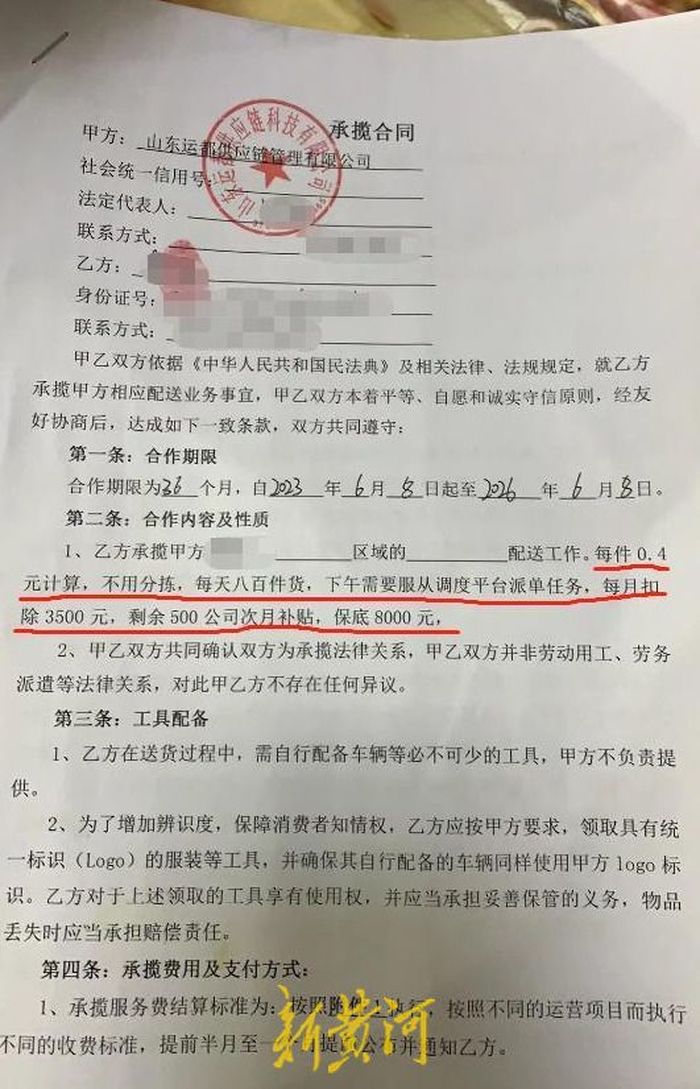 承揽合同
甲方：山东运都供应链管理有限公司
社会统一信用号：
法定代表人：
联系方式：
乙方：
身份证号：
联系方式：
甲乙双方依据《中华人民共和国民法典》及相关法律、法规规定，就乙方
承揽甲方相应配送业务事宜，甲乙双方本着平等、自愿和诚实守信原则，经友
好协商后，达成如下一致条款，双方共同遵守：
第一条：合作期限
合作期限为36个月，自2023年6月8日起至2026年6月8日。
第二条：合作内容及性质
1、乙方承揽甲方 区域的 配送工作。每件 0.4
元计算，不用分拣，每天八百件货，下午需要服从调度平台派单任务，每月扣
除 3500 元，剩余 500 公司次月补贴，保底 8000 元，
2、甲乙双方共同确认双方为承揽法律关系，甲乙双方并非劳动用工、劳务
派遣等法律关系，对此甲乙方不存在任何异议。
第三条：工具配备
1、乙方在送货过程中，需自行配备车辆等必不可少的工具，甲方不负责提
供。
2、为了增加辨识度，保障消费者知情权，乙方应按甲方要求，领取具有统
一标识（Logo）的服装等工具，并确保其自行配备的车辆同样使用甲方 logo 标
识。乙方对于上述领取的工具享有使用权，并应当承担妥善保管的义务，物品
丢失时应当承担赔偿责任。
第四条：承揽费用及支付方式：
1、承揽服务费结算标准为：按照附件 1 执行，按照不同的运营项目而执行
不同的收费标准，提前半月至一 公布并通知乙方。
新黄河